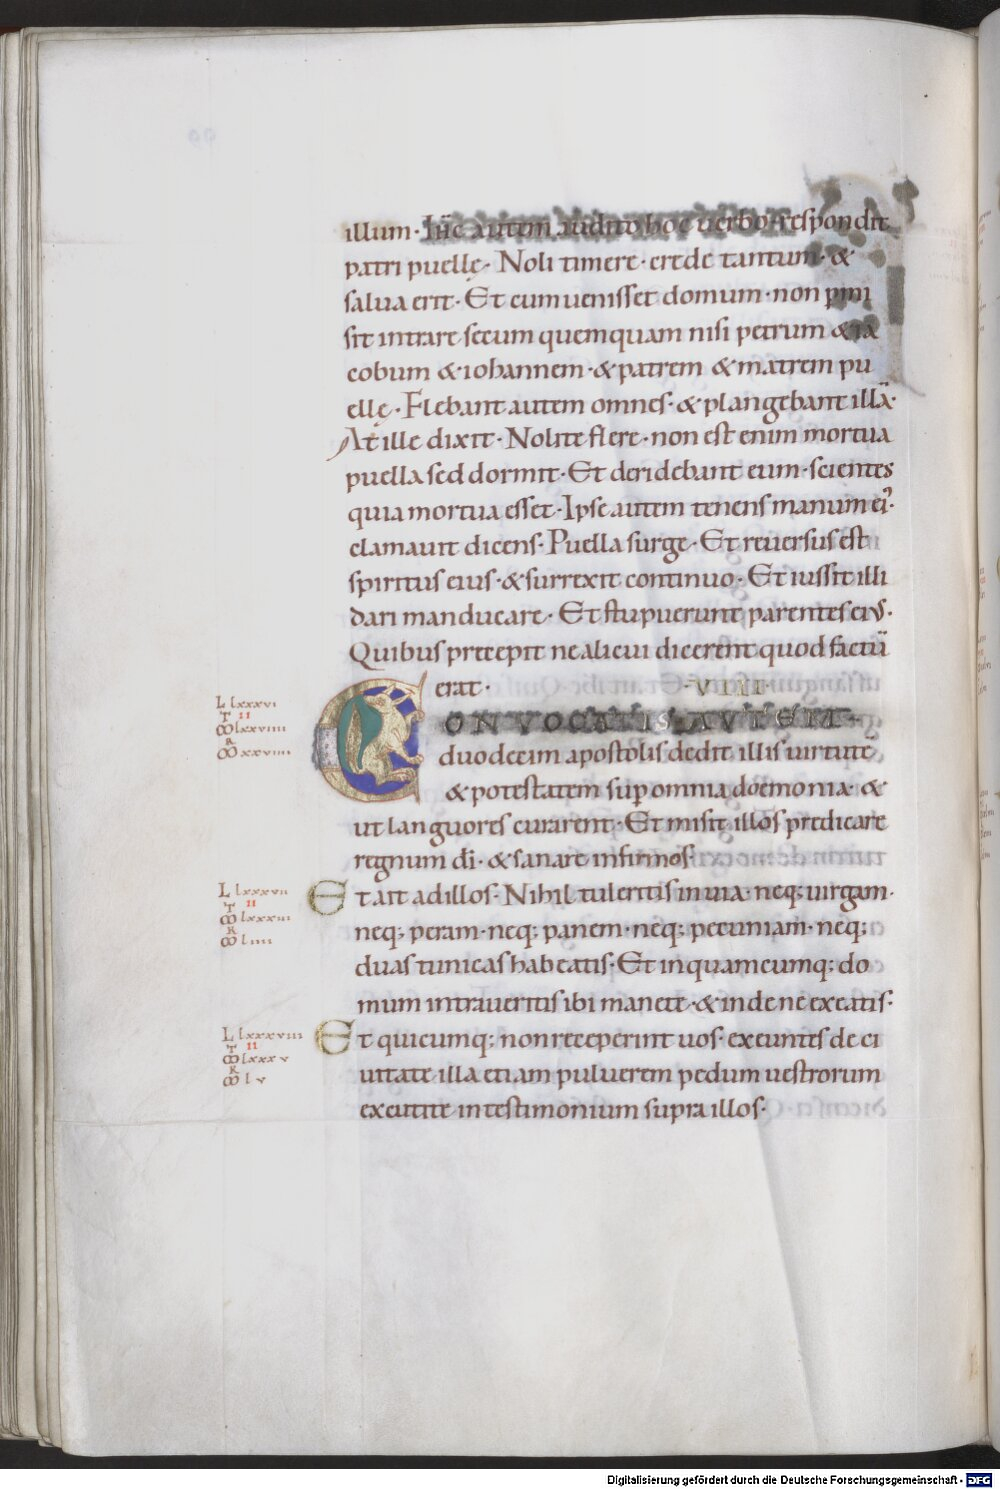 illum · Ihc̄ autem audito hoc uerbo · respondit
patri puellę · Noli timere · crede tantum · &
salua erit · Et cum uenisset domum · non pmi
sit intrare secum quemquam nisi petrum & ia
cobum & iohannem · & patrem & matrem pu
ellę · Flebant autem omnes · & plangebant illā ·
At ille dixit · Nolite flere · non est enim mortua
puella sed dormit · Et deridebant eum · scientes
quia mortua esset · Ipse autem tenens manum ei᾿ ·
clamauit dicens · Puella surge · Et reuersus est
spiritus eius · & surrexit continuo · Et iussit illi
dari manducare · Et stupuerunt parentes eius ·
Quibus precepit ne alicui dicerent quod factū
erat · VIIII ·
CONVOCATIS AVTEM
duodecim apostolis dedit illis uirtutē
& potestatem sup omnia doemonia · &
ut languores curarent · Et misit illos predicare
regnum dī · & sanare infirmos ·
Et ait ad illos · Nihil tuleritis in uia · neq; uirgam ·
neq; peram · neq; panem · neq; pecuniam · neq;
duas tunicas habeatis · Et in quamcumq; do
mum intraueritis ibi manete · & inde ne exeatis ·
Et quicumq; non receperint uos · exeuntes de ci
uitate illa etiam puluerem pedum uestrorum
excutite in testimonium supra illos ·
L lxxxvi
II
M lxxxviiii
R
M xxviiii
L lxxxvii
II
M lxxxiii
R
M liiii
L lxxxviii
II
M lxxxv
R
M lv
Digitalisierung gefördert durch die Deutsche Forschungsgemeinschaft - DFG